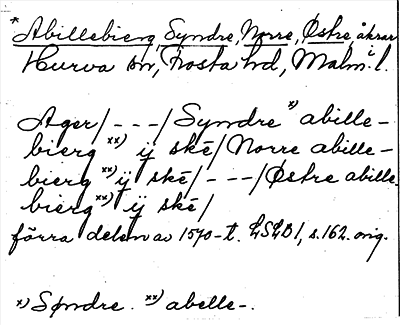 * Abillebierg, Syndre, Norre, Østre, åkrar i
Hurva sn, Frosta hd, Malm. l.
Ager/---/Syndre x) abille-
bierg xx) ij skē/Norre abille-
bierg xx) ij skē/---/Østre abille-
bierg xx) ij skē/
förra delen av 1570-t. LSLB1, s. 162. orig.
x) Søndre. xx) abelle-.